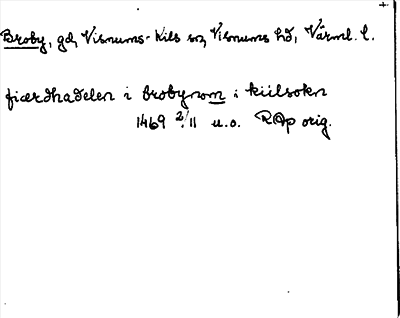 Broby, gd, Visnums-Kils sn, Visnums hd, Värml. l.
fiærdhadelen i brobynom i kiilsokn
1469 2/11 u.o. RAp orig.